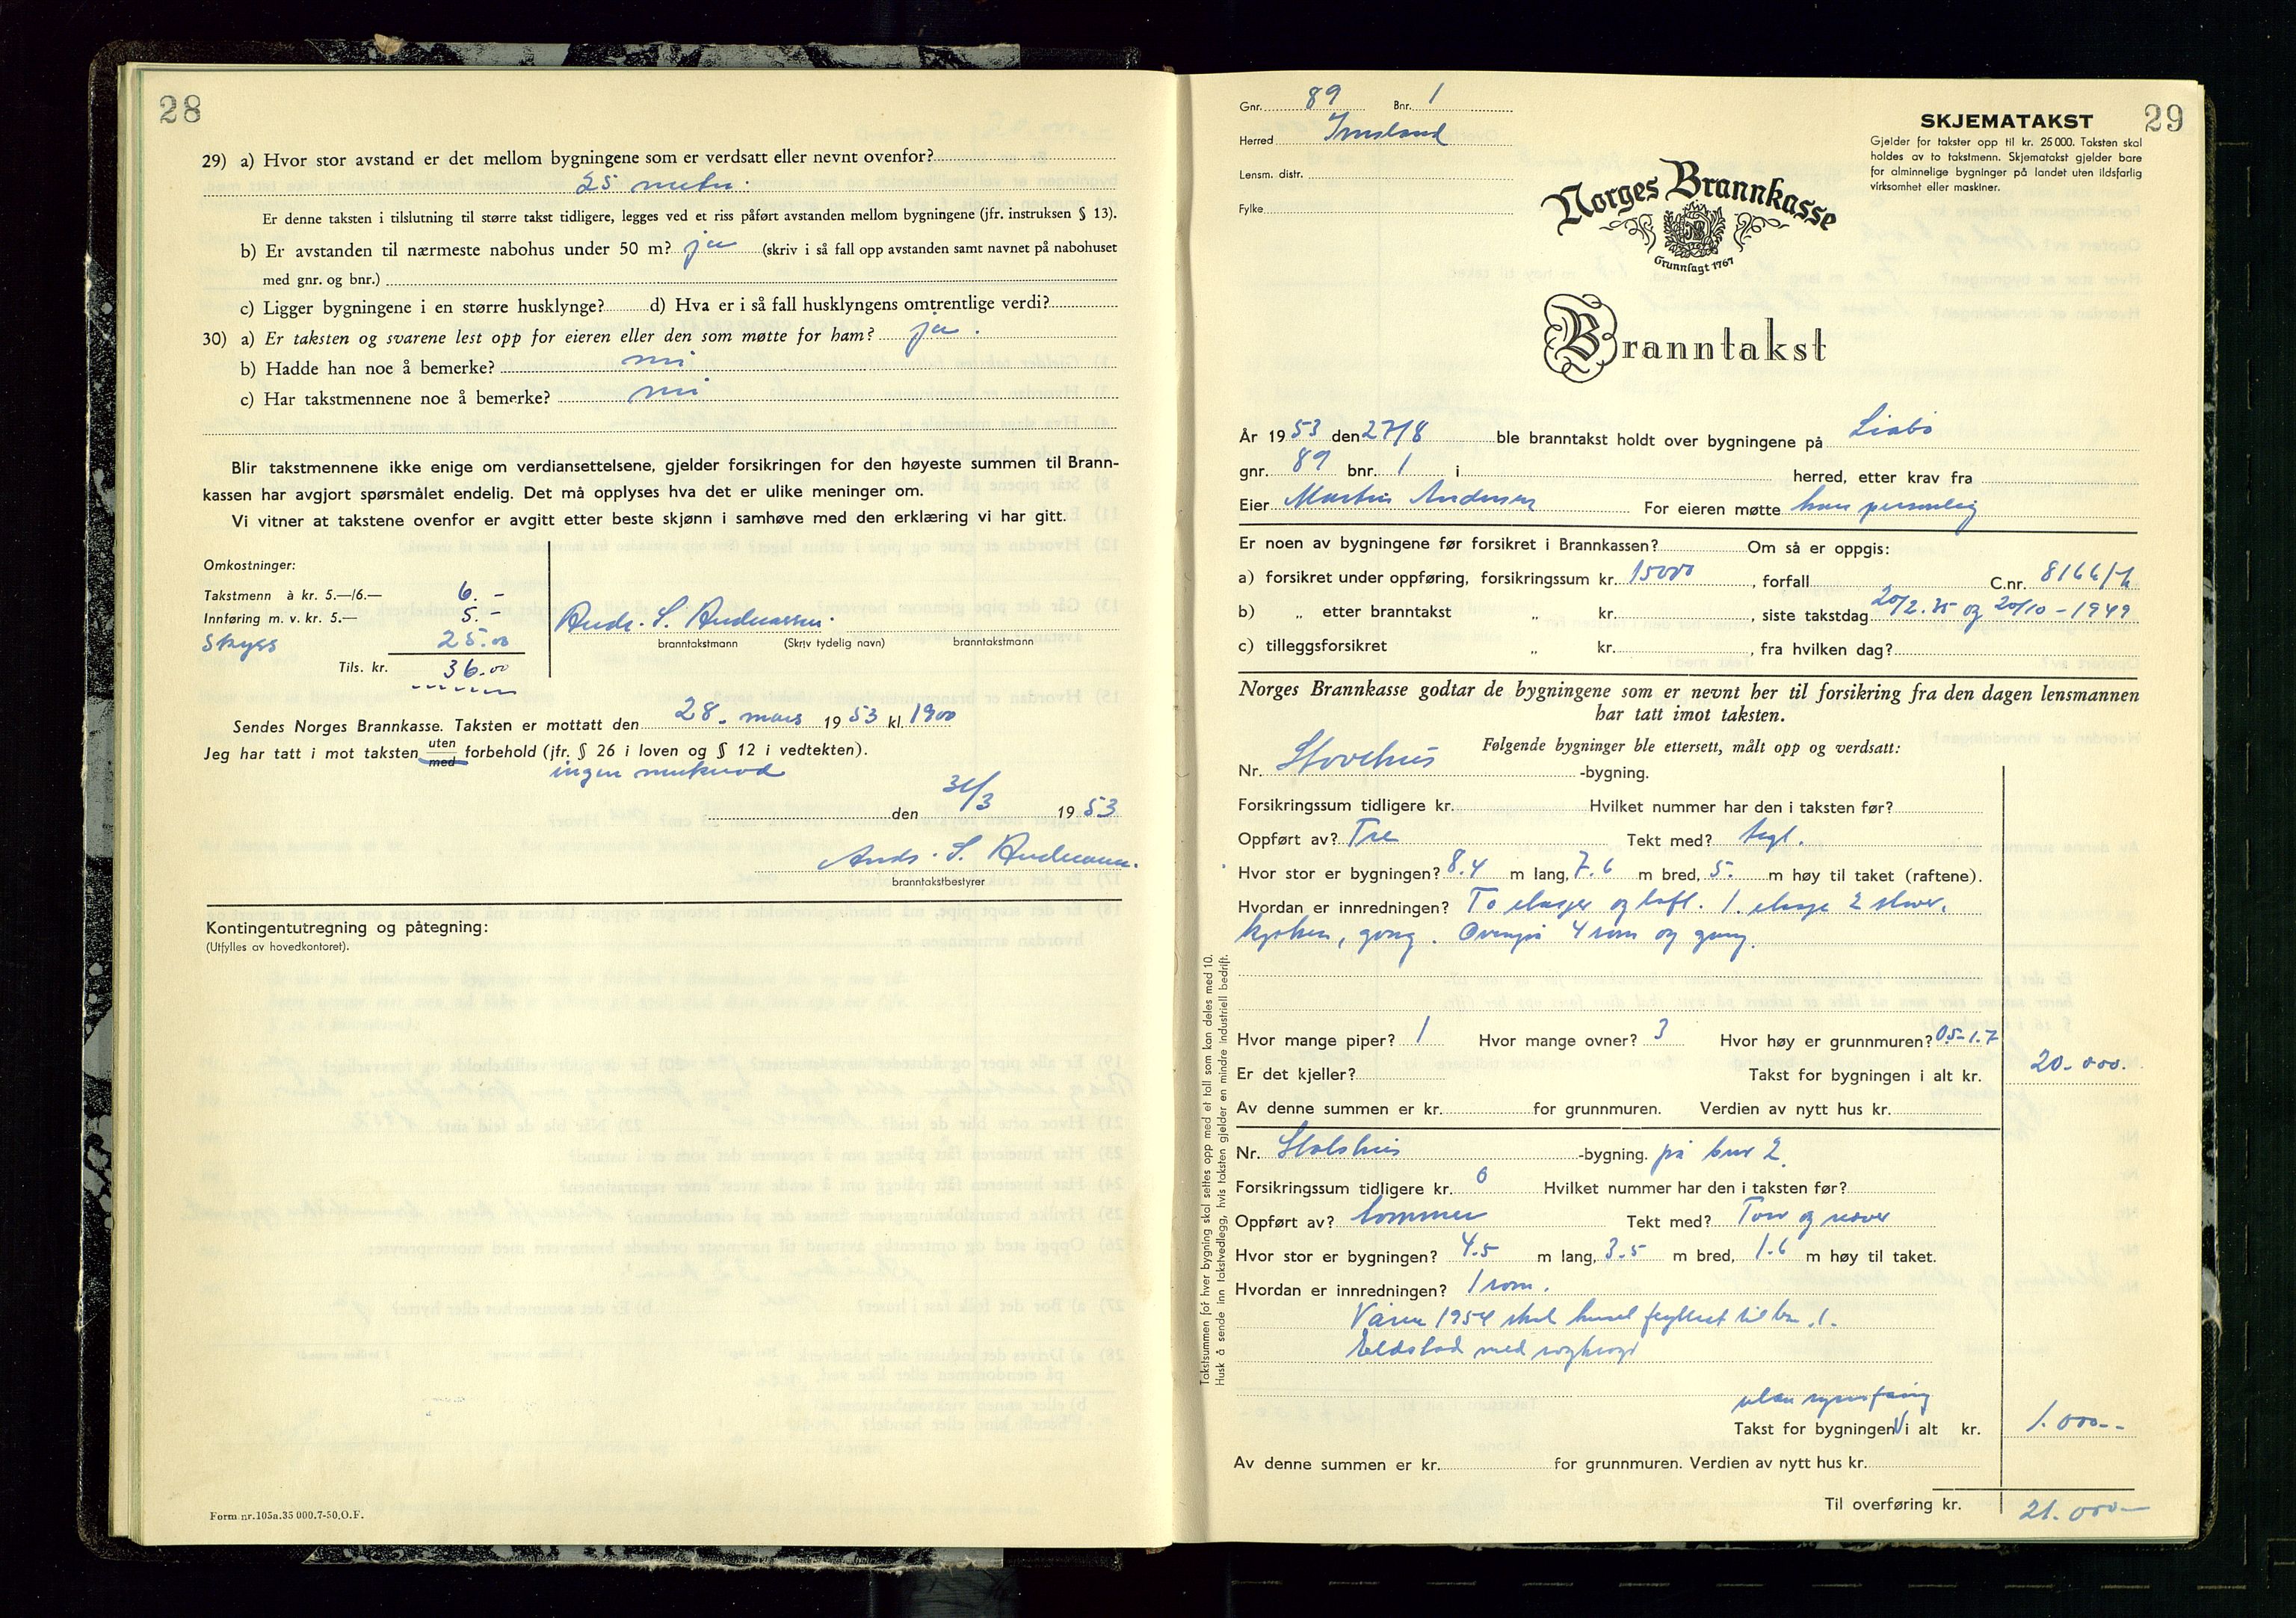 28
29) a) Hvor stor avstand er det mellom bygningene som er verdsatt eller nevnt ovenfor?
25 meter.
Er denne taksten i tilslutning til større takst tidligere, legges ved et riss påført avstanden mellom bygningene (jfr. instruksen § 13).
b) Er avstanden til nærmeste nabohus under 50 m? ja (skriv i så fall opp avstanden samt navnet på nabohuset
med gnr. og bnr.)
c) Ligger bygningene i en større husklynge? d) Hva er i så fall husklyngens omtrentlige verdi?
30) a) Er taksten og svarene lest opp for eieren eller den som møtte for ham? ja.
b) Hadde han noe å bemerke? nei
c) Har takstmennene noe å bemerke? nei
Blir takstmennene ikke enige om verdiansettelsene, gjelder forsikringen for den høyeste summen til Brann-
kassen har avgjort spørsmålet endelig. Det må opplyses hva det er ulike meninger om.
Vi vitner at takstene ovenfor er avgitt etter beste skjønn i samhøve med den erklæring vi har gitt.
Omkostninger:
Takstmenn à kr. 5.—/6.— 6.-
Innføring m. v. kr. 5.— 5.-
Skyss 25.00
Tils. kr. 36.00
Ands. S. Andreassen.
branntakstmann (Skriv tydelig navn) branntakstmann
Sendes Norges Brannkasse. Taksten er mottatt den 28. mars 1953 kl. 1900
Jeg har tatt i mot taksten uten med forbehold (jfr. § 26 i loven og § 12 i vedtekten).
ingen
den 31/3 1953
Ands. S. Andreassen.
branntakstbestyrer
Kontingentutregning og påtegning:
(Utfylles av hovedkontoret).
Form nr. 105a. 35 000. 7-50. O. F.
29
Gnr. 89 Bnr. 1
Herred Imsland
Lensm. distr.
Fylke
SKJEMATAKST
Gjelder for takster opp til kr. 25 000. Taksten skal
holdes av to takstmenn. Skjematakst gjelder bare
for alminnelige bygninger på landet uten ildsfarlig
virksomhet eller maskiner.
Norges Brannkasse
Grunnlagt 1767
Branntakst
År 1953 den 27/8 ble branntakst holdt over bygningene på Liabø
gnr. 89 bnr. 1 i herred, etter krav fra
Eier Martin Andersen For eieren møtte han personlig
Er noen av bygningene før forsikret i Brannkassen? Om så er oppgis:
a) forsikret under oppføring, forsikringssum kr. 15000, forfall C.nr. 8166/
b) „ etter branntakst „ kr. , siste takstdag 20/2.35 og 20/10-1949
c) tilleggsforsikret „ kr. , fra hvilken dag?
Norges Brannkasse godtar de bygningene som er nevnt her til forsikring fra den dagen lensmannen
har tatt imot taksten.
Følgende bygninger ble ettersett, målt opp og verdsatt:
Nr. Stovehus -bygning.
Forsikringssum tidligere kr. Hvilket nummer har den i taksten før?
Oppført av? Tre Tekt med? tegl.
Hvor stor er bygningen? 8.4 m lang, 7.6 m bred, 5. m høy til taket (raftene).
Hvordan er innredningen? To etasjer og loft. 1. etasje 2 stuer,
kjøken, gong. Ovenpå 4 rom og gang.
Hvor mange piper? 1 Hvor mange ovner? 3 Hvor høy er grunnmuren? 0.5-1.7
Er det kjeller? Takst for bygningen i alt kr. 20.000.
Av denne summen er kr. for grunnmuren. Verdien av nytt hus kr.
Nr. Stølshus -bygning. på bnr 2.
Forsikringssum tidligere kr. 0 Hvilket nummer har den i taksten før?
Oppført av? tømmer Tekt med? Torv og never
Hvor stor er bygningen? 4.5 m lang, 3.5 m bred, 1.6 m høy til taket.
Hvordan er innredningen? 1 rom.
Våren 1954 skal huset flyttest til bn. 1.
Eldstad med
utan
Takst for bygningen i alt kr. 1.000.-
Av denne summen er kr. for grunnmuren. Verdien av nytt hus kr.
Til overføring kr. 21.000-
Takstsummen for hver bygning skal settes opp med et tall som kan deles med 10.
Husk å sende inn takstvedlegg, hvis taksten gjelder en mindre industriell bedrift.